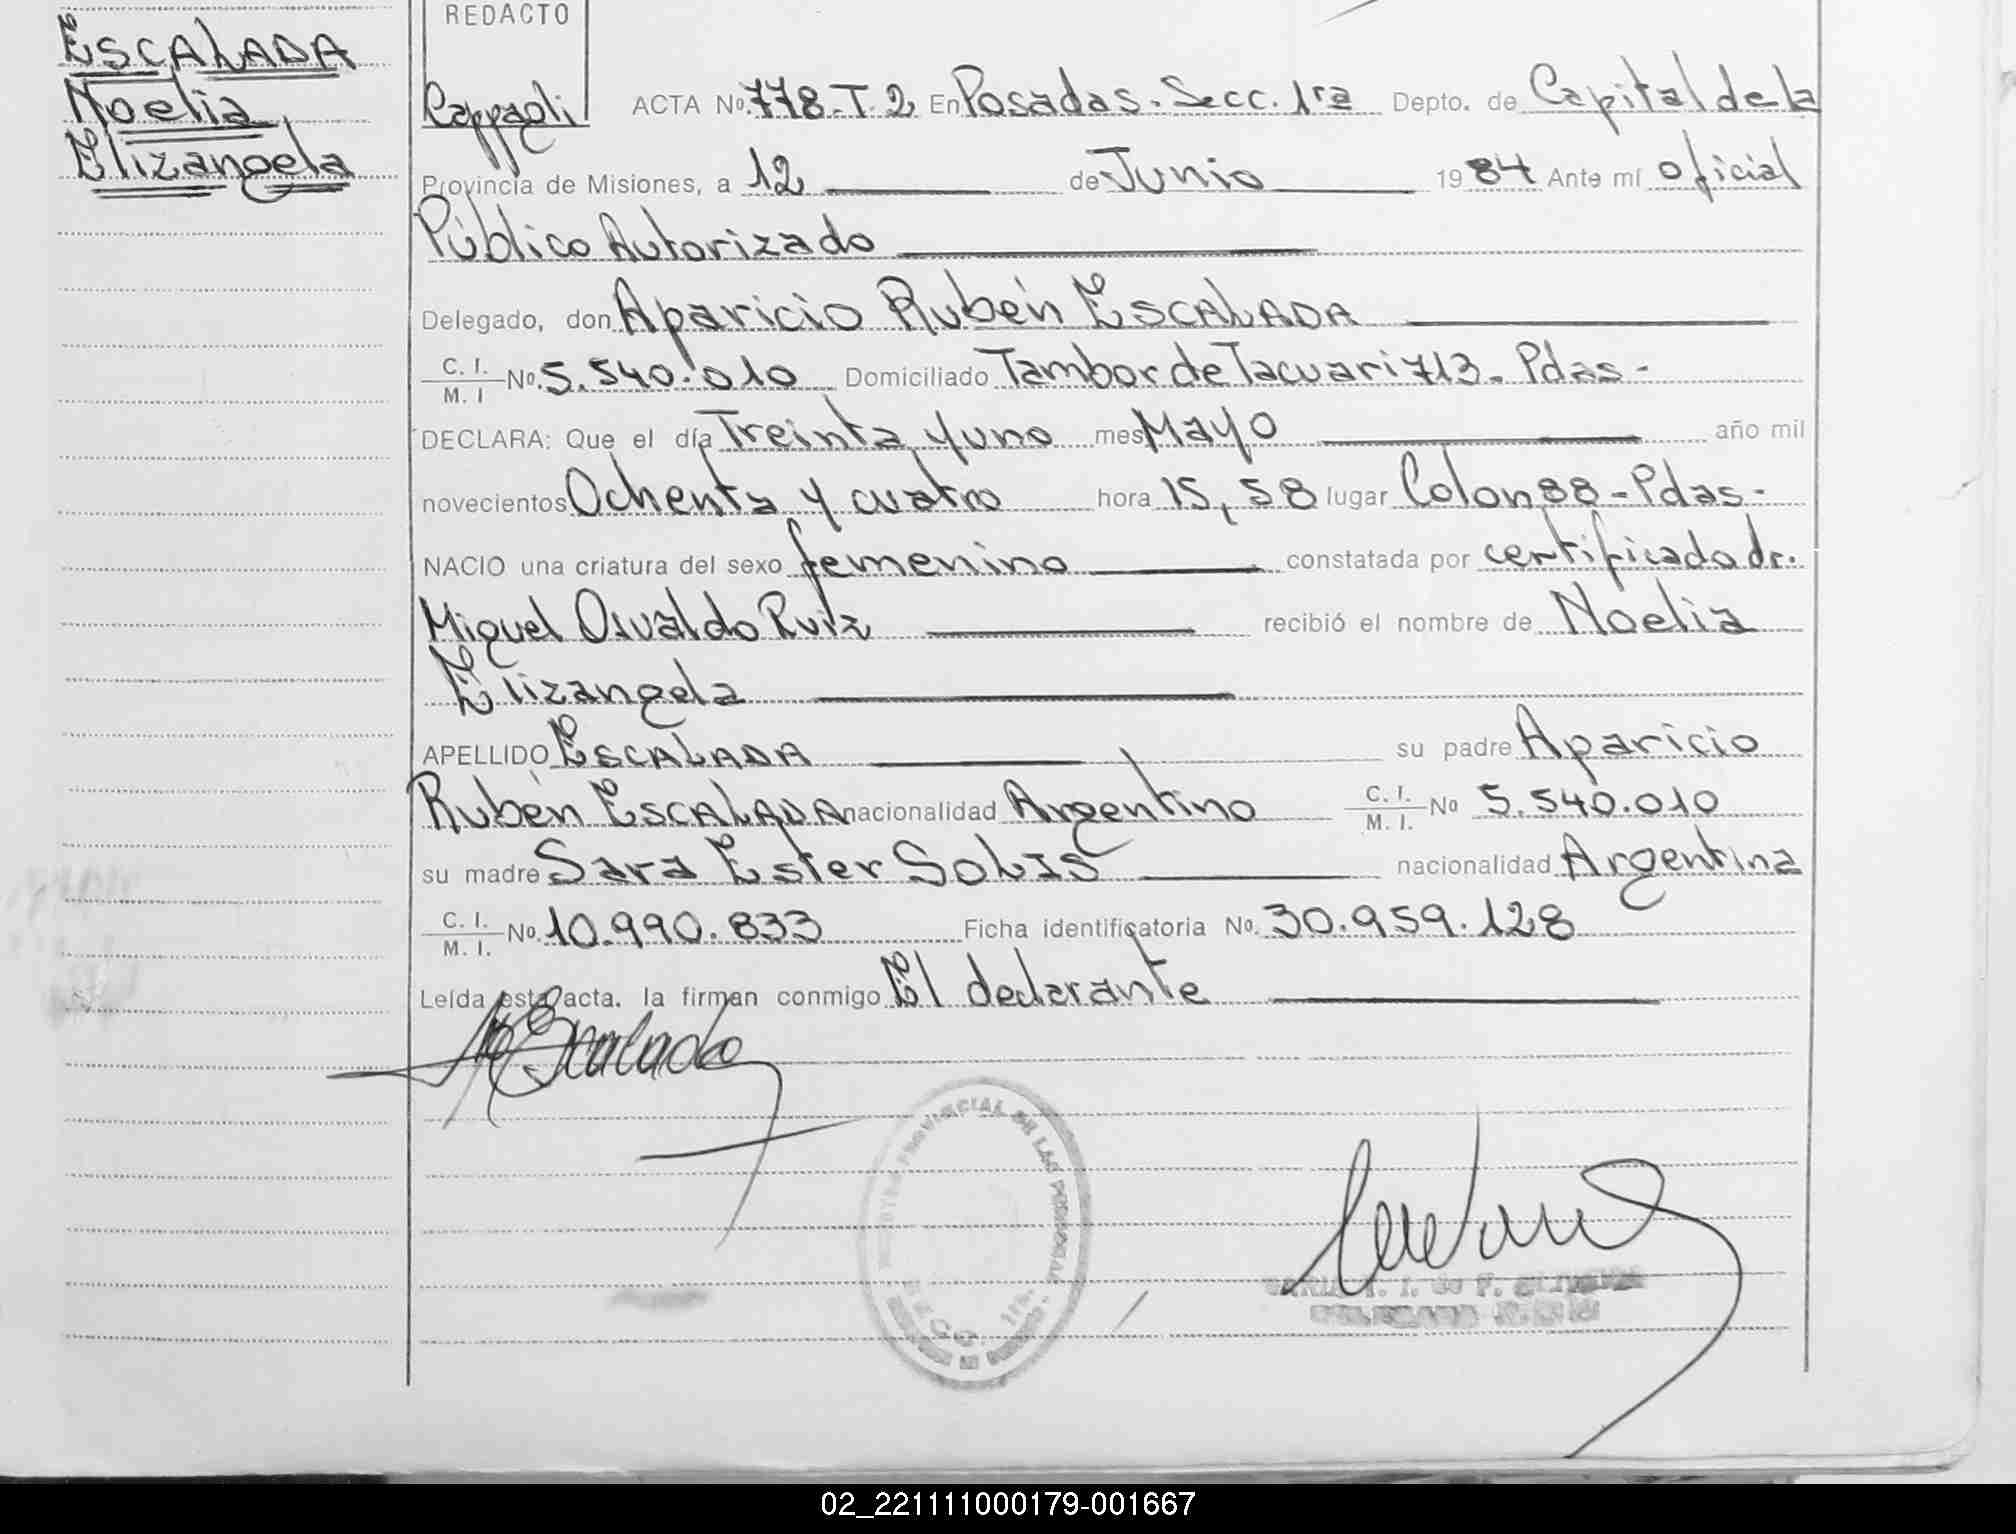 ESCALADA
Noelia
Elizangela
REDACTO
Cappagli
ACTA No. 778-T.2 En Posadas. Secc. 1ra Depto. de Capital de la
Provincia de Misiones, a 12 de Junio 1984 Ante mí oficial
Público Autorizado
Delegado, don Aparicio Rubén ESCALADA
C. I. / M. I No. 5.540.010 Domiciliado Tambor de Tacuari 713. Pdas-
DECLARA: Que el día Treinta y uno mes Mayo año mil
novecientos Ochenta y cuatro hora 15,58 lugar Colon 88-Pdas-
NACIO una criatura del sexo femenino constatada por certificado dr.
Miguel Osvaldo Ruiz recibió el nombre de Noelia
Elizangela
APELLIDO ESCALADA su padre Aparicio
Rubén ESCALADA nacionalidad Argentino C. I. / M. I. No 5.540.010
su madre Sara Ester SOLIS nacionalidad Argentina
C. I. / M. I. No. 10.990.833 Ficha identificatoria No. 30.959.128
Leída esta acta, la firman conmigo El declarante
Escalada
PROVINCIAL DE LAS PERSONAS
SECC. 1ra.
02_221111000179-001667